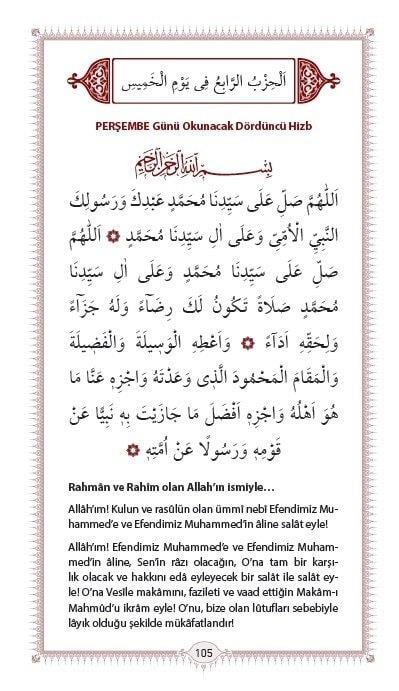 اَلْحِزْبُ الرَّابِعُ فِي يَوْمِ الْخَمِيسِ
PERŞEMBE Günü Okunacak Dördüncü Hizb
بِسْمِ اللّٰهِ الرَّحْمٰنِ الرَّحِيمِ
اَللّٰهُمَّ صَلِّ عَلَى سَيِّدِنَا مُحَمَّدٍ عَبْدِكَ وَرَسُولِكَ
النَّبِيِّ الْاُمِّيِّ وَعَلَى اٰلِ سَيِّدِنَا مُحَمَّدٍ ۞ اَللّٰهُمَّ
صَلِّ عَلَى سَيِّدِنَا مُحَمَّدٍ وَعَلَى اٰلِ سَيِّدِنَا
مُحَمَّدٍ صَلَاةً تَكُونُ لَكَ رِضَٓاءً وَلَهُ جَزَٓاءً
وَلِحَقِّهِ اَدَٓاءً ۞ وَاَعْطِهِ الْوَسِيلَةَ وَالْفَضِيلَةَ
وَالْمَقَامَ الْمَحْمُودَ الَّذِي وَعَدْتَهُ وَاجْزِهِ عَنَّا مَا
هُوَ اَهْلُهُ وَاجْزِهِ اَفْضَلَ مَا جَازَيْتَ بِهِ نَبِيًّا عَنْ
قَوْمِهِ وَرَسُولًا عَنْ اُمَّتِهِ ۞
Rahmân ve Rahîm olan Allah’ın ismiyle…
Allâh’ım! Kulun ve rasûlün olan ümmî nebî Efendimiz Mu-
hammed’e ve Efendimiz Muhammed’in âline salât eyle!
Allâh’ım! Efendimiz Muhammed’e ve Efendimiz Muham-
med’in âline, Sen’in râzı olacağın, O’na tam bir karşı-
lık olacak ve hakkını edâ eyleyecek bir salât ile salât ey-
le! O’na Vesîle makamını, fazileti ve vaad ettiğin Makâm-ı
Mahmûd’u ikrâm eyle! O’nu, bize olan lûtufları sebebiyle
lâyık olduğu şekilde mükâfatlandır!
105